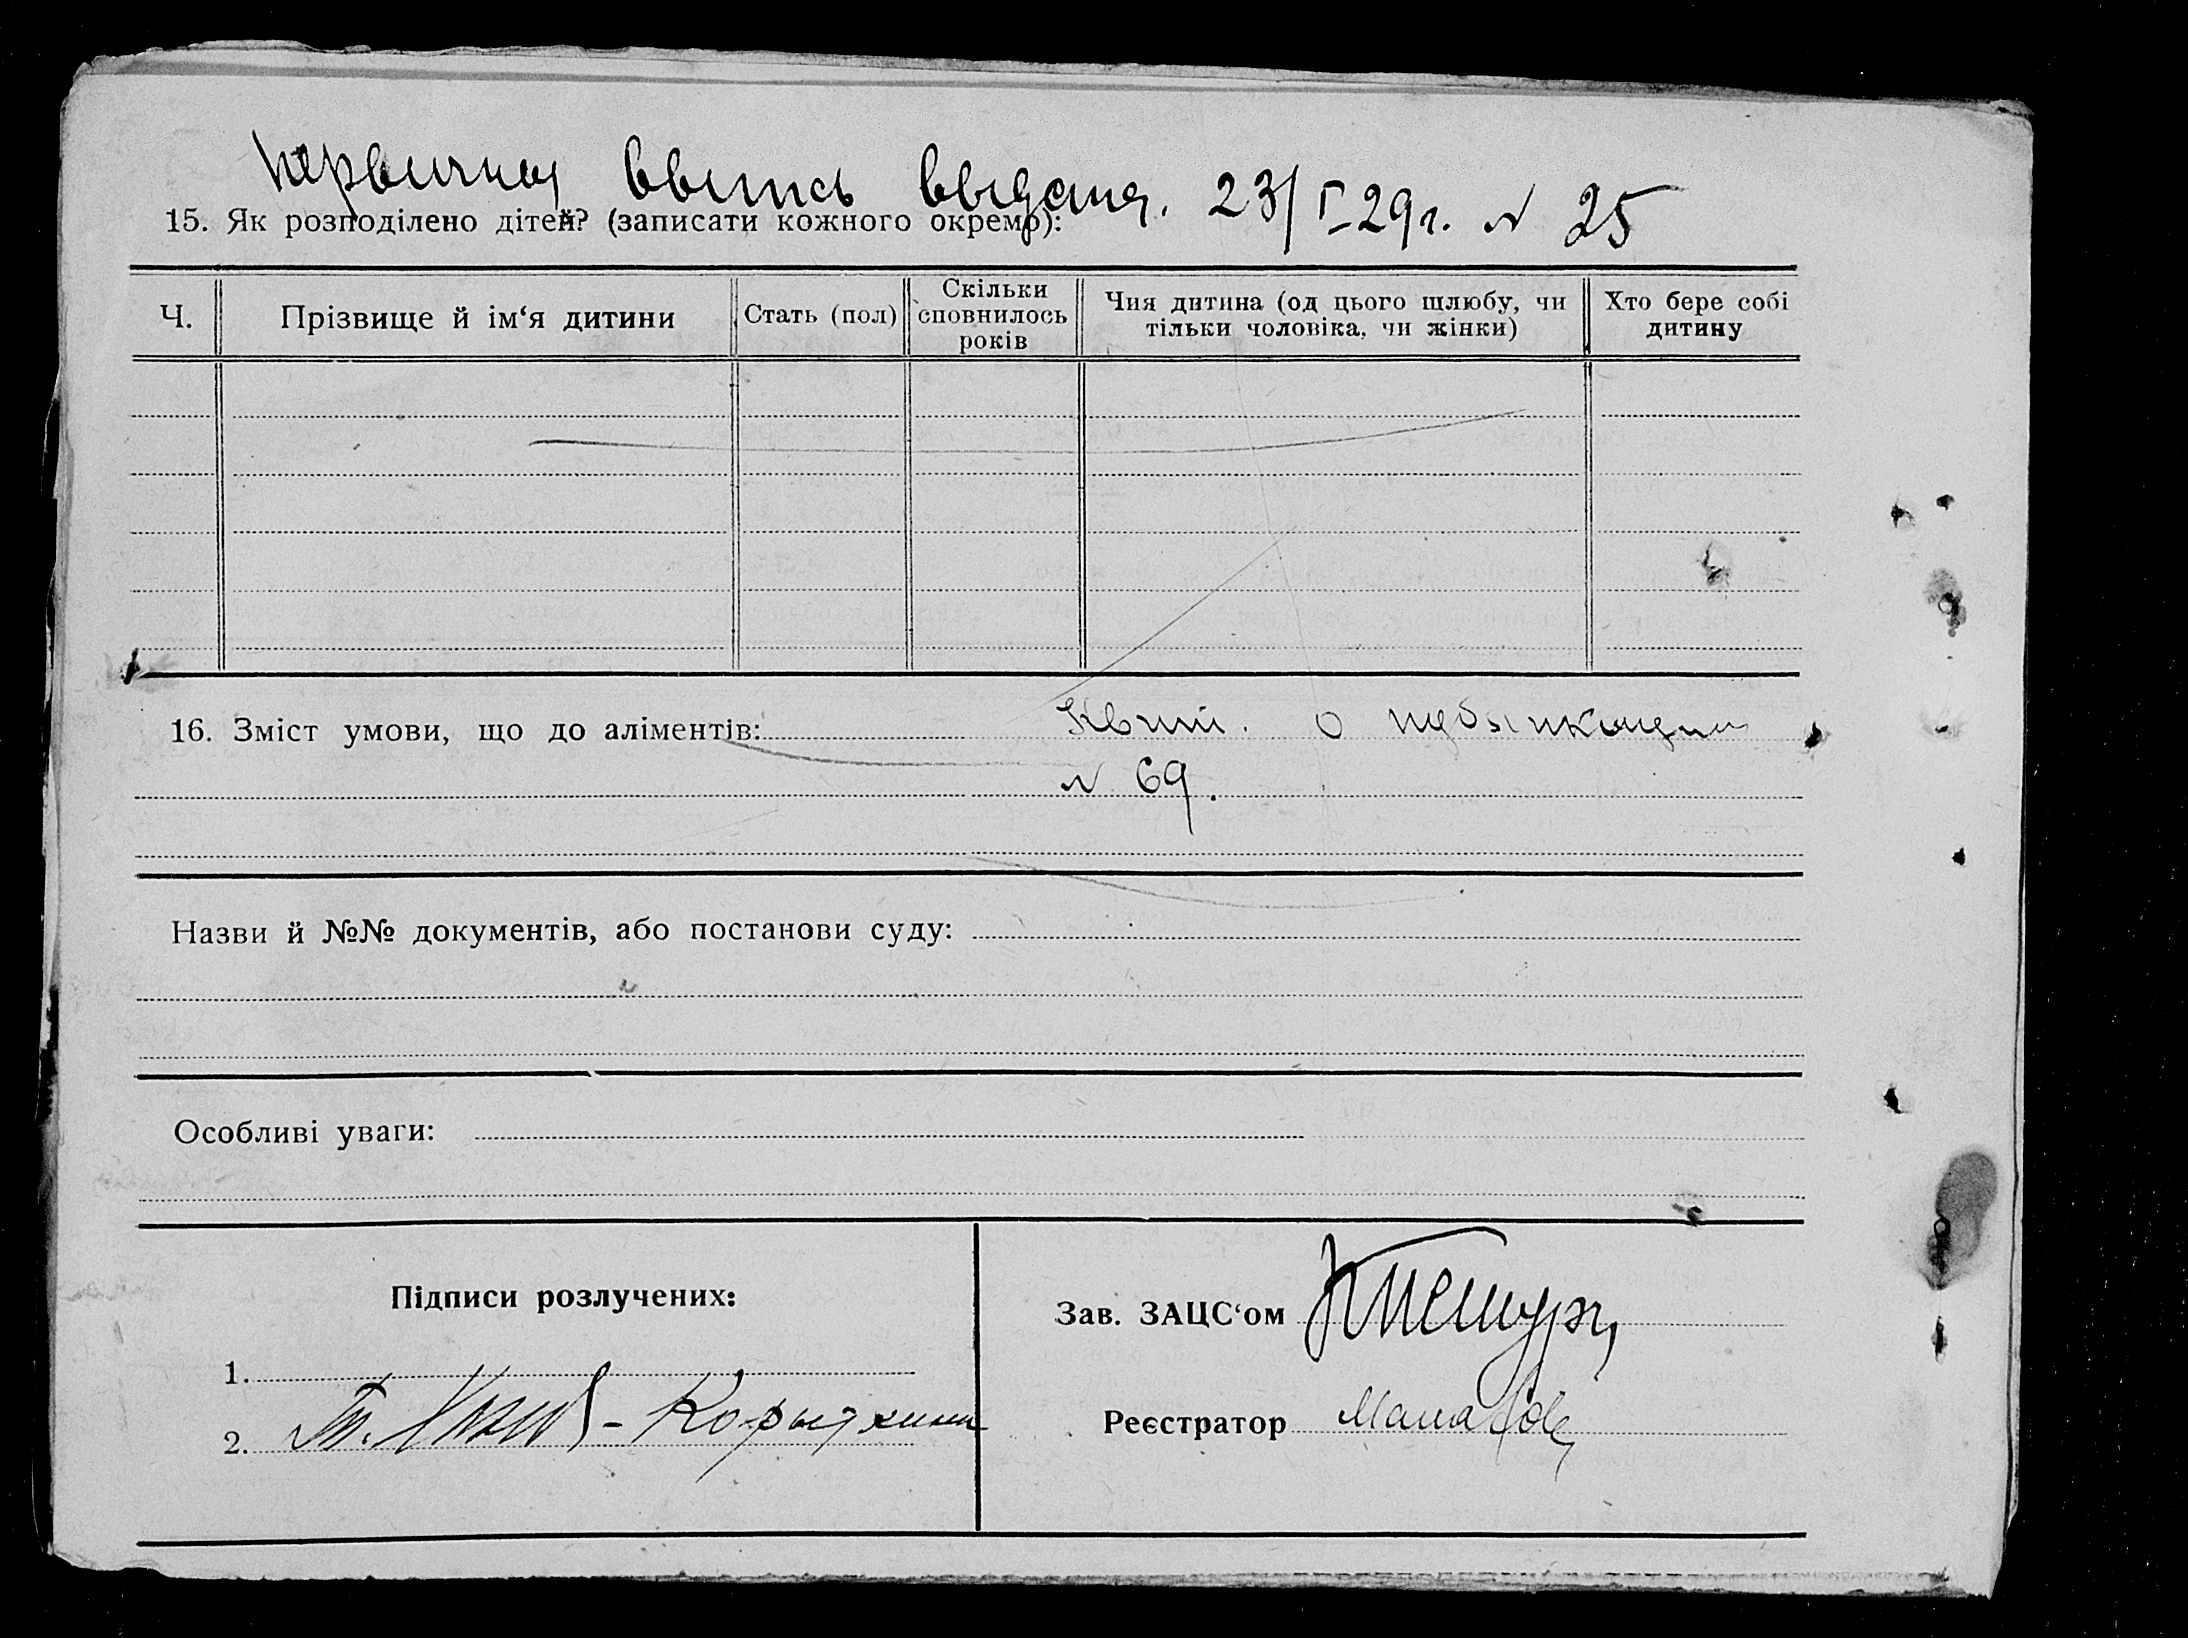 Первичная выпись выдана. 23/I-29г. № 25
15. Як розподілено дітей? (записати кожного окремо):
Ч.
Прізвище й ім‘я дитини
Стать (пол)
Скільки
сповнилось
років
Чия дитина (од цього шлюбу, чи
тільки чоловіка, чи жінки)
Хто бере собі
дитину
16. Зміст умови, що до аліментів: Квит. о публикации
№ 69.
Назви й №№ документів, або постанови суду:
Особливі уваги:
Підписи розлучених:
1.
2.
Зав. ЗАЦС‘ом
Реєстратор